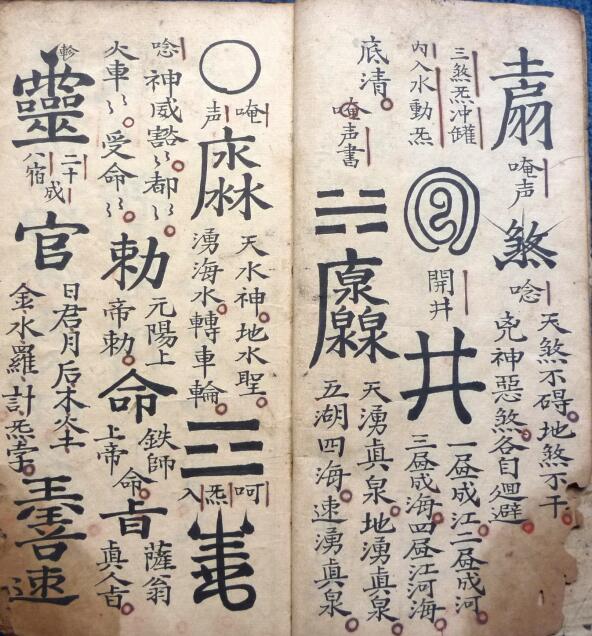 唵声
煞
唸
天煞不碍地煞不干
兇神惡煞各自廻避
三煞炁冲罐
内入水動炁
開井
井
一昼成江二昼成河
三昼成海四昼江河海
底清
唵声書
天湧真泉地湧真泉
五湖四海速湧真泉
唵声
天水神地水聖
湧海水轉車輪
呵炁入
唸
神威豁〻都〻
火車〻受命〻
勅
元陽上
帝勅
命
鉄師
上帝命
旨
薩翁
真人旨
軫
靈
二十
八宿
成
官
日君月后木火土
金水羅計炁孛
速